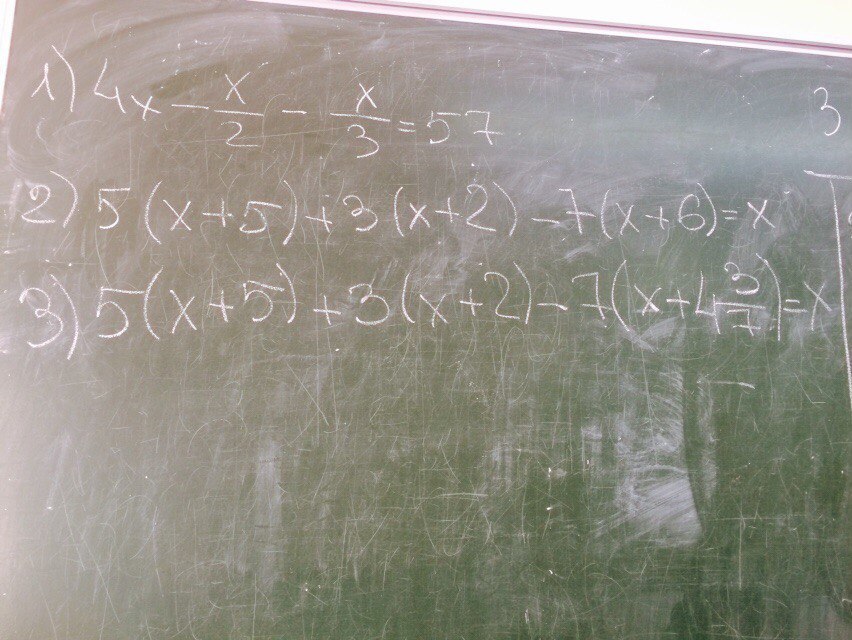 1) 4x - x/2 - x/3 = 57
3
2) 5(x+5)+3(x+2)-7(x+6)=x
3) 5(x+5)+3(x+2)-7(x+4 3/7)=x